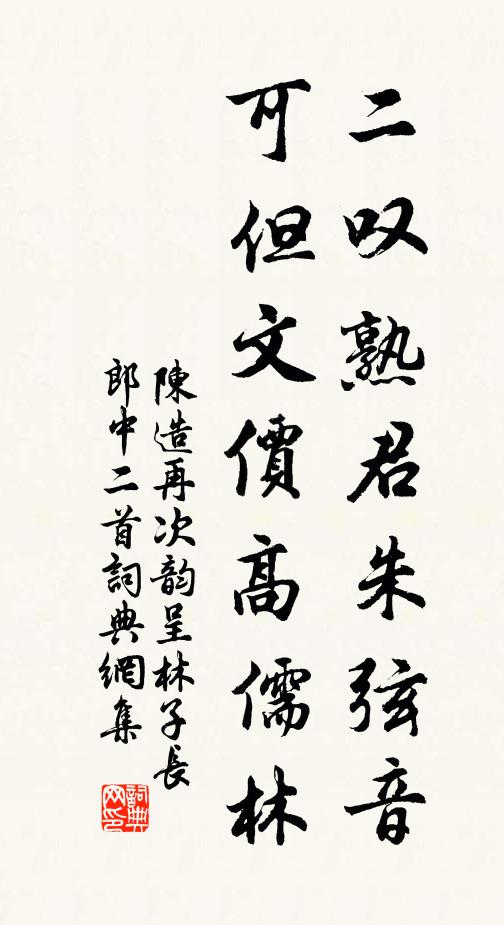 二叹熟君朱弦音
可但文價高儒林
陳造再次韵呈林子長
郎中二首詞典網集
詞典网印